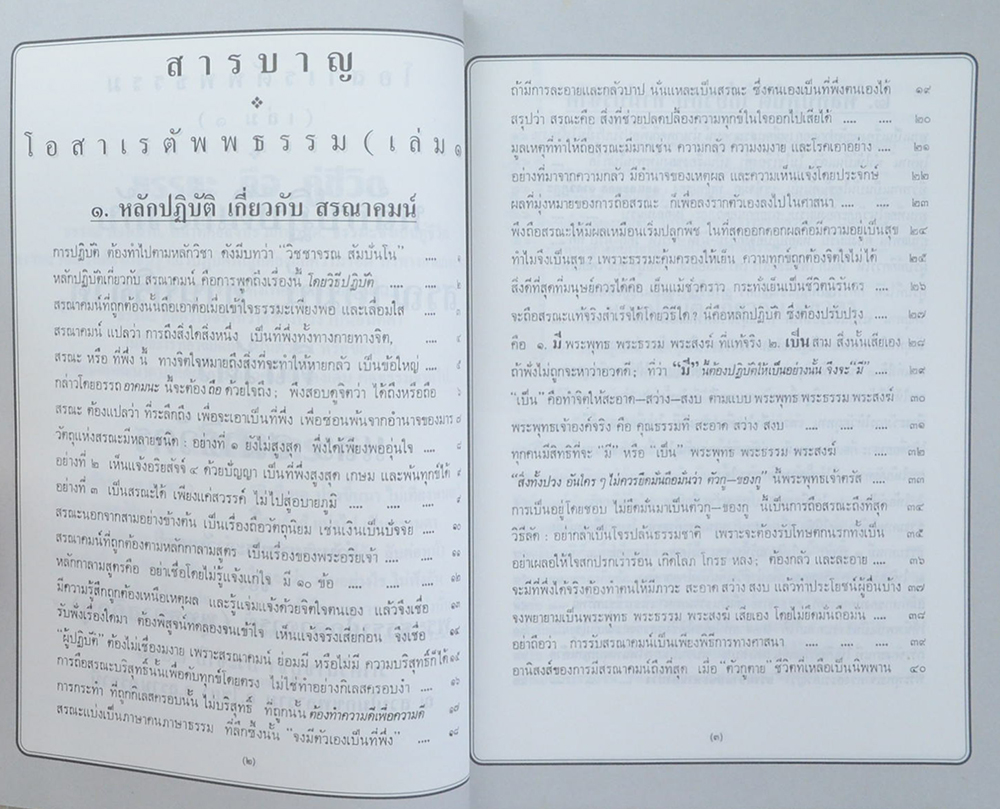 สารบาญ
❖
โอสาเรตัพพธรรม (เล่ม ๑
๑. หลักปฏิบัติ เกี่ยวกับ สรณาคมน์
การปฏิบัติ ต้องทำไปตามหลักวิชา ดังมีบทว่า "วิชชาจรณ สัมปันโน" .... ๑
หลักปฏิบัติเกี่ยวกับ สรณาคมน์ คือการพูดถึงเรื่องนี้ โดยวิธีปฏิบัติ .... ๒
สรณาคมน์ที่ถูกต้องนั้นถือเอาต่อเมื่อเข้าใจธรรมะเพียงพอ และเลื่อมใส .... ๓
สรณาคมน์ แปลว่า การถึงสิ่งใดสิ่งหนึ่ง เป็นที่พึ่งทั้งทางกายทางจิต, .... ๔
สรณะ หรือ ที่พึ่ง นี้ ทางจิตใจหมายถึงสิ่งที่จะทำให้หายกลัว เป็นข้อใหญ่ .... ๕
กล่าวโดยอรรถ อาคมนะ นี้จะต้อง ถือ ด้วยใจถึง; พึงสอบดูจิตว่า ได้ถึงหรือถือ ๖
สรณะ ต้องแปลว่า ที่ระลึกถึง เพื่อจะเอาเป็นที่พึ่ง เพื่อซ่อนพ้นจากอำนาจของมาร ๗
วัตถุแห่งสรณะมีหลายชนิด : อย่างที่ ๑ ยังไม่สูงสุด พึ่งได้เพียงพออุ่นใจ .... ๘
อย่างที่ ๒ เห็นแจ้งอริยสัจจ์ ๔ ด้วยปัญญา เป็นที่พึ่งสูงสุด เกษม และพ้นทุกข์ได้ ๙
อย่างที่ ๓ เป็นสรณะได้ เพียงแค่สวรรค์ ไม่ไปสู่อบายภูมิ .... .... ....
สรณะนอกจากสามอย่างข้างต้น เป็นเรื่องถือวัตถุนิยม เช่นเงินเป็นปัจจัย .... ๑๐
สรณาคมน์ที่ถูกต้องตามหลักกาลามสูตร เป็นเรื่องของพระอริยเจ้า .... ๑๑
หลักกาลามสูตรคือ อย่าเชื่อโดยไม่รู้แจ้งแก่ใจ มี ๑๐ ข้อ .... .... ๑๒
มีความรู้สึกถูกต้องเหนือเหตุผล และรู้แจ่มแจ้งด้วยจิตใจตนเอง แล้วจึงเชื่อ ๑๓
รับฟังเรื่องใดมา ต้องพิสูจน์ทดลองจนเข้าใจ เห็นแจ้งจริงเสียก่อน จึงเชื่อ ๑๔
"ผู้ปฏิบัติ" ต้องไม่เชื่องมงาย เพราะสรณาคมน์ ย่อมมี หรือไม่มี ความบริสุทธิ์ก็ได้ ๑๕
การถือสรณะบริสุทธิ์นั้นเพื่อดับทุกข์โดยตรง ไม่ใช่ทำอย่างกิเลสครอบงำ .... ๑๖
การกระทำ ที่ถูกกิเลสครอบนั้น ไม่บริสุทธิ์ ที่ถูกนั้น ต้องทำความดีเพื่อความดี ๑๗
สรณะแบ่งเป็นภาษาคนภาษาธรรม ที่ลึกซึ้งนั้น "จงมีตัวเองเป็นที่พึ่ง" .... ๑๘
(๒)
ถ้ามีการละอายและกลัวบาป นั่นแหละเป็นสรณะ ซึ่งตนเองเป็นที่พึ่งตนเองได้ ๑๙
สรุปว่า สรณะคือ สิ่งที่ช่วยปลดปล่อยความทุกข์ในใจออกไปเสียได้ .... .... ๒๐
มูลเหตุที่ทำให้ถือสรณะมีมากเช่น ความกลัว ความงมงาย และโรคเอาอย่าง .... ๒๑
อย่างที่มาจากความกลัว มีอำนาจของเหตุผล และความเห็นแจ้งโดยประจักษ์ ๒๒
ผลที่มุ่งหมายของการถือสรณะ ก็เพื่อลงรากตัวเองลงไปในศาสนา .... ๒๓
พึงถือสรณะให้มีผลเหมือนเริ่มปลูกพืช ในที่สุดออกดอกผลคือมีความอยู่เป็นสุข ๒๔
ทำไมจึงเป็นสุข? เพราะธรรมะคุ้มครองให้เย็น ความทุกข์ถูกต้องจิตใจไม่ได้ ๒๕
สิ่งดีที่สุดที่มนุษย์ควรได้คือ เย็นแม้ชั่วคราว กระทั่งเย็นเป็นชีวิตนิรันดร .... ๒๖
จะถือสรณะแท้จริงสำเร็จได้โดยวิธีใด? นี่คือหลักปฏิบัติ ซึ่งต้องปรับปรุง .... ๒๗
คือ ๑. มี พระพุทธ พระธรรม พระสงฆ์ ที่แท้จริง ๒. เป็น สาม สิ่งนั้นเสียเอง ๒๘
ถ้าฟังไม่ถูกจะหาว่าอวดดี; ที่ว่า "มี" นี้ต้องปฏิบัติให้เป็นอย่างนั้น จึงจะ "มี" .... ๒๙
"เป็น" คือทำจิตให้สะอาด–สว่าง–สงบ ตามแบบ พระพุทธ พระธรรม พระสงฆ์ ๓๐
พระพุทธเจ้าองค์จริง คือ คุณธรรมที่ สะอาด สว่าง สงบ .... .... .... ๓๑
ทุกคนมีสิทธิที่จะ "มี" หรือ "เป็น" พระพุทธ พระธรรม พระสงฆ์ .... ๓๒
"สิ่งทั้งปวง อันใคร ๆ ไม่ควรยึดมั่นถือมั่นว่า ตัวกู–ของกู" นี้พระพุทธเจ้าตรัส ๓๓
การเป็นอยู่โดยชอบ ไม่ยึดมั่นมาเป็นตัวกู–ของกู นี้เป็นการถือสรณะถึงที่สุด ๓๔
วิธีลัด : อย่ากล้าเป็นโจรปล้นธรรมชาติ เพราะจะต้องรับโทษตกนรกทั้งเป็น ๓๕
อย่าเผลอให้ใจสกปรกเร่าร้อน เกิดโลภ โกรธ หลง; ต้องกลัว และละอาย .... ๓๖
จะมีที่พึ่งได้จริงต้องทำตนให้มีภาวะ สะอาด สว่าง สงบ แล้วทำประโยชน์ผู้อื่นบ้าง ๓๗
จงพยายามเป็นพระพุทธ พระธรรม พระสงฆ์ เสียเอง โดยไม่ยึดมั่นถือมั่น .... ๓๘
อย่าถือว่า การรับสรณาคมน์เป็นเพียงพิธีการทางศาสนา .... .... ๓๙
อานิสงส์ของการมีสรณาคมน์ถึงที่สุด เมื่อ "ตัวกูตาย" ชีวิตที่เหลือเป็นนิพพาน ๔๐
(๓)